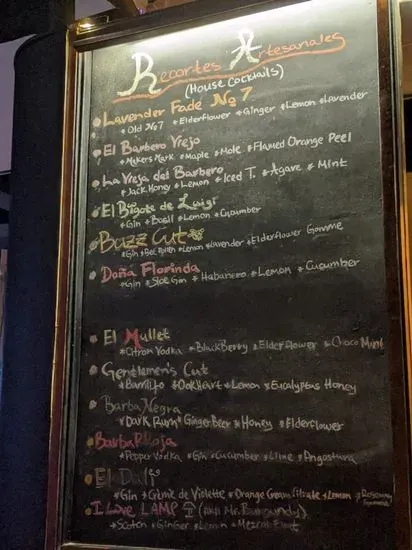 Recortes Artesanales
(House cocktails)
Lavender Fade No 7
* Old No7 * Elderflower * Ginger * Lemon * Lavender
El Barbero Viejo
* Makers Mark * Maple * Mole * Flamed Orange Peel
La Vieja del Barbero
* Jack Honey * Lemon * Iced T. * Agave * Mint
El Bigote de Luigi
* Gin * Basil * Lemon * Cucumber
Buzz Cut
* Gin * Bee Pollen * Lemon * Lavender * Elderflower Gomme
Doña Florinda
* Gin * Sloe Gin * Habanero * Lemon * Cucumber
El Mullet
* Citron Vodka * BlackBerry * Elderflower * Choco Mint
Gentlemen's Cut
* Barrilito * OakHeart * Lemon * Eucalyptus Honey
Barba Negra
* Dark Rum * Ginger Beer * Honey * Elderflower
Barba Roja
* Pepper Vodka * Gin * Cucumber * Lime * Angostura
El Dalí
* Gin * Créme de Violette * Orange Cream Citrate * Lemon * Rosemary
I Love LAMP (AKA Mr. Burgundy)
* Scotch * Ginger * Lemon * Mezcal Float